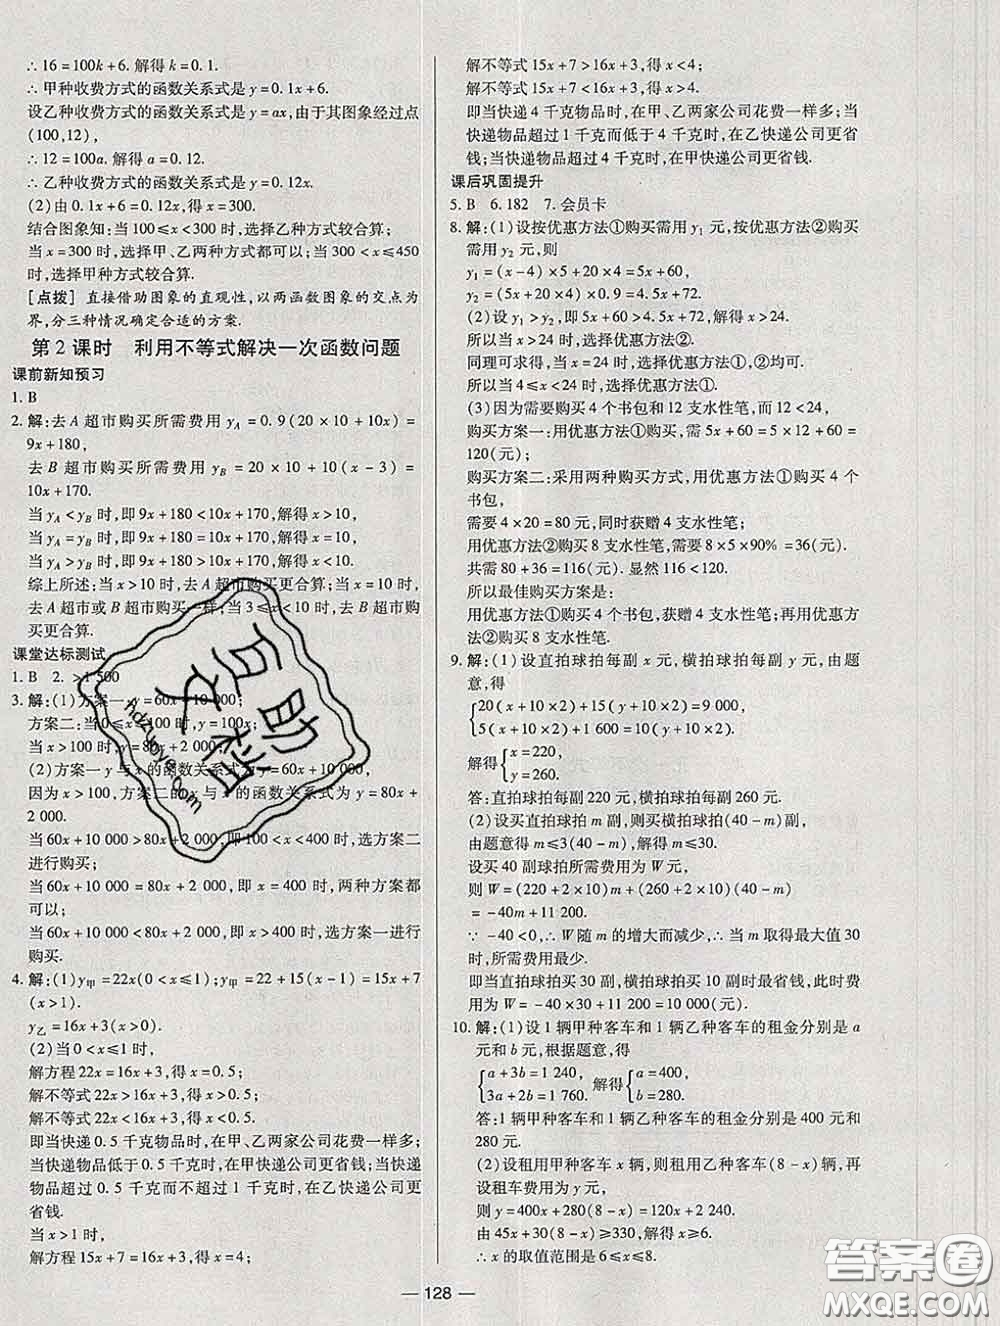 ∴ 16 = 100k + 6. 解得 k = 0. 1.
∴ 甲种收费方式的函数关系式是 y = 0. 1x + 6.
设乙种收费方式的函数关系式是 y = ax, 由于其图象经过点
(100, 12),
∴ 12 = 100a. 解得 a = 0. 12.
∴ 乙种收费方式的函数关系式是 y = 0. 12x.
(2) 由 0. 1x + 6 = 0. 12x, 得 x = 300.
结合图象知: 当 100 ≤ x < 300 时, 选择乙种方式较合算;
当 x = 300 时, 选择甲、乙两种方式都可以; 当 300 < x ≤ 450
时, 选择甲种方式较合算.
[点拨] 直接借助图象的直观性, 以两函数图象的交点为
界, 分三种情况确定合适的方案.
第 2 课时 利用不等式解决一次函数问题
课前新知预习
1. B
2. 解: 去 A 超市购买所需费用 y_A = 0. 9(20 × 10 + 10x) =
9x + 180,
去 B 超市购买所需费用 y_B = 20 × 10 + 10(x - 3) =
10x + 170.
当 y_A < y_B 时, 即 9x + 180 < 10x + 170, 解得 x > 10,
当 y_A = y_B 时, 即 9x + 180 = 10x + 170, 解得 x = 10,
当 y_A > y_B 时, 即 9x + 180 > 10x + 170, 解得 x < 10,
综上所述: 当 x > 10 时, 去 A 超市购买更合算; 当 x = 10 时,
去 A 超市或 B 超市购买一样; 当 3 ≤ x < 10 时, 去 B 超市购
买更合算.
课堂达标测试
1. B 2. > 1 500
3. 解: (1) 方案一: y = 60x + 10 000;
方案二: 当 0 ≤ x ≤ 100 时, y = 100x;
当 x > 100 时, y = 80x + 2 000.
(2) 方案一 y 与 x 的函数关系式为 y = 60x + 10 000,
因为 x > 100, 方案二的 y 与 x 的函数关系式为 y = 80x +
2 000.
当 60x + 10 000 > 80x + 2 000, 即 100 < x < 400 时, 选方案二
进行购买;
当 60x + 10 000 = 80x + 2 000, 即 x = 400 时, 两种方案都
可以;
当 60x + 10 000 < 80x + 2 000, 即 x > 400 时, 选方案一进行
购买.
4. 解: (1) y_甲 = 22x(0 < x ≤ 1); y_甲 = 22 + 15(x - 1) = 15x + 7
(x > 1).
y_乙 = 16x + 3(x > 0).
(2) 当 0 < x ≤ 1 时,
解方程 22x = 16x + 3, 得 x = 0. 5;
解不等式 22x > 16x + 3, 得 x > 0. 5;
解不等式 22x < 16x + 3, 得 x < 0. 5;
即当快递 0. 5 千克物品时, 在甲、乙两家公司花费一样多;
当快递物品低于 0. 5 千克时, 在甲快递公司更省钱; 当快
递物品超过 0. 5 千克而不超过 1 千克时, 在乙快递公司更
省钱.
当 x > 1 时,
解方程 15x + 7 = 16x + 3, 得 x = 4;
解不等式 15x + 7 > 16x + 3, 得 x < 4;
解不等式 15x + 7 < 16x + 3, 得 x > 4;
即当快递 4 千克物品时, 在甲、乙两家公司花费一样多; 当
快递物品超过 1 千克而低于 4 千克时, 在乙快递公司更省
钱; 当快递物品超过 4 千克时, 在甲快递公司更省钱.
课后巩固提升
5. B 6. 182 7. 会员卡
8. 解: (1) 设按优惠方法①购买需用 y₁ 元, 按优惠方法②购买
需用 y₂ 元, 则
y₁ = (x - 4) × 5 + 20 × 4 = 5x + 60,
y₂ = (5x + 20 × 4) × 0. 9 = 4. 5x + 72.
(2) 设 y₁ > y₂, 即 5x + 60 > 4. 5x + 72, 所以 x > 24.
所以当 x > 24 时, 选择优惠方法②.
同理可求得, 当 x = 24 时, 选择优惠方法①、②均可.
所以当 4 ≤ x < 24 时, 选择优惠方法①.
(3) 因为需要购买 4 个书包和 12 支水性笔, 而 12 < 24,
购买方案一: 用优惠方法①购买, 需 5x + 60 = 5 × 12 + 60 =
120(元);
购买方案二: 采用两种购买方式, 用优惠方法①购买 4 个
书包,
需要 4 × 20 = 80 元, 同时获赠 4 支水性笔;
用优惠方法②购买 8 支水性笔, 需要 8 × 5 × 90% = 36(元).
共需 80 + 36 = 116(元). 显然 116 < 120.
所以最佳购买方案是:
用优惠方法①购买 4 个书包, 获赠 4 支水性笔; 再用优惠方
法②购买 8 支水性笔.
9. 解: (1) 设直拍球拍每副 x 元, 横拍球拍每副 y 元, 由题
意, 得
20(x + 10 × 2) + 15(y + 10 × 2) = 9 000,
5(x + 10 × 2) + 1 600 = 10(y + 10 × 2),
解得 { x = 220,
y = 260.
答: 直拍球拍每副 220 元, 横拍球拍每副 260 元.
(2) 设买直拍球拍 m 副, 则买横拍球拍 (40 - m) 副,
由题意得 m ≤ 3(40 - m), 解得 m ≤ 30.
设买 40 副球拍所需费用为 W 元,
则 W = (220 + 2 × 10)m + (260 + 2 × 10)(40 - m)
= -40m + 11 200.
∵ -40 < 0, ∴ W 随 m 的增大而减少, ∴ 当 m 取得最大值 30
时, 所需费用最少.
即当直拍球拍买 30 副, 横拍球拍买 10 副时最省钱, 此时费
用为 W = -40 × 30 + 11 200 = 10 000(元).
10. 解: (1) 设 1 辆甲种客车和 1 辆乙种客车的租金分别是 a
元和 b 元, 根据题意, 得
{ a + 3b = 1 240, 解得 { a = 400,
3a + 2b = 1 760. b = 280.
答: 1 辆甲种客车和 1 辆乙种客车的租金分别是 400 元和
280 元.
(2) 设租用甲种客车 x 辆, 则租用乙种客车 (8 - x) 辆, 再
设租车费用为 y 元,
则 y = 400x + 280(8 - x) = 120x + 2 240.
由 45x + 30(8 - x) ≥ 330, 解得 x ≥ 6.
∴ x 的取值范围是 6 ≤ x ≤ 8.
— 128 —
百助文档
hdzuoye.com
答案圈
MXQE.COM